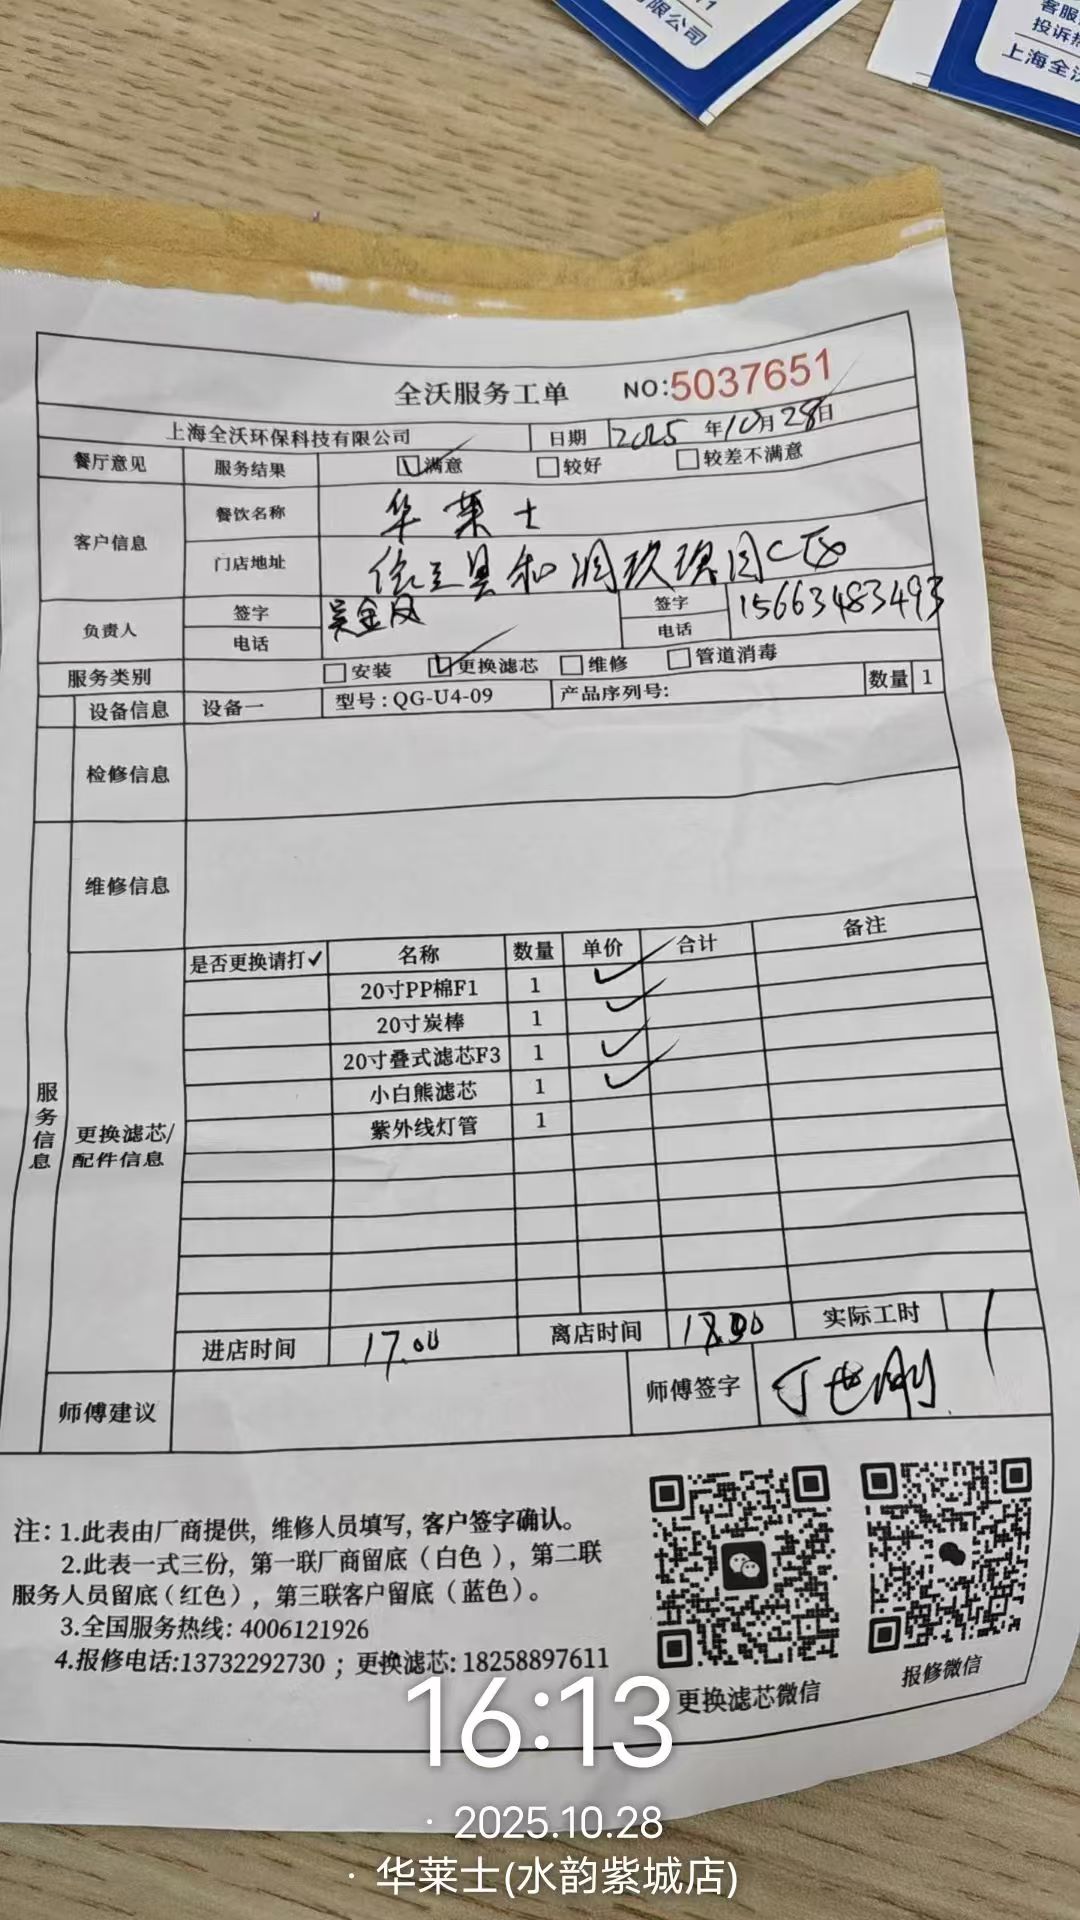 限公司
客服
投诉热
上海全沃
全沃服务工单 NO:5037651
上海全沃环保科技有限公司 日期 2025年10月28日
餐厅意见 服务结果 满意 较好 较差不满意
客户信息 餐饮名称 华莱士
门店地址 县和润玖璟园C区
负责人 签字 吴金凤 签字
电话 电话 15663483493
服务类别 安装 更换滤芯 维修 管道消毒
设备信息 设备一 型号:QG-U4-09 产品序列号: 数量 1
检修信息
维修信息
服务信息
更换滤芯/配件信息
是否更换请打✓ 名称 数量 单价 合计 备注
20寸PP棉F1 1 ✓
20寸炭棒 1 ✓
20寸叠式滤芯F3 1 ✓
小白熊滤芯 1 ✓
紫外线灯管 1
进店时间 17.00 离店时间 18.00 实际工时 1
师傅建议 师傅签字 丁世刚
注:1.此表由厂商提供,维修人员填写,客户签字确认。
2.此表一式三份,第一联厂商留底(白色),第二联
服务人员留底(红色),第三联客户留底(蓝色)。
3.全国服务热线:4006121926
4.报修电话:13732292730;更换滤芯:18258897611
更换滤芯微信 报修微信
16:13
· 2025.10.28
· 华莱士(水韵紫城店)